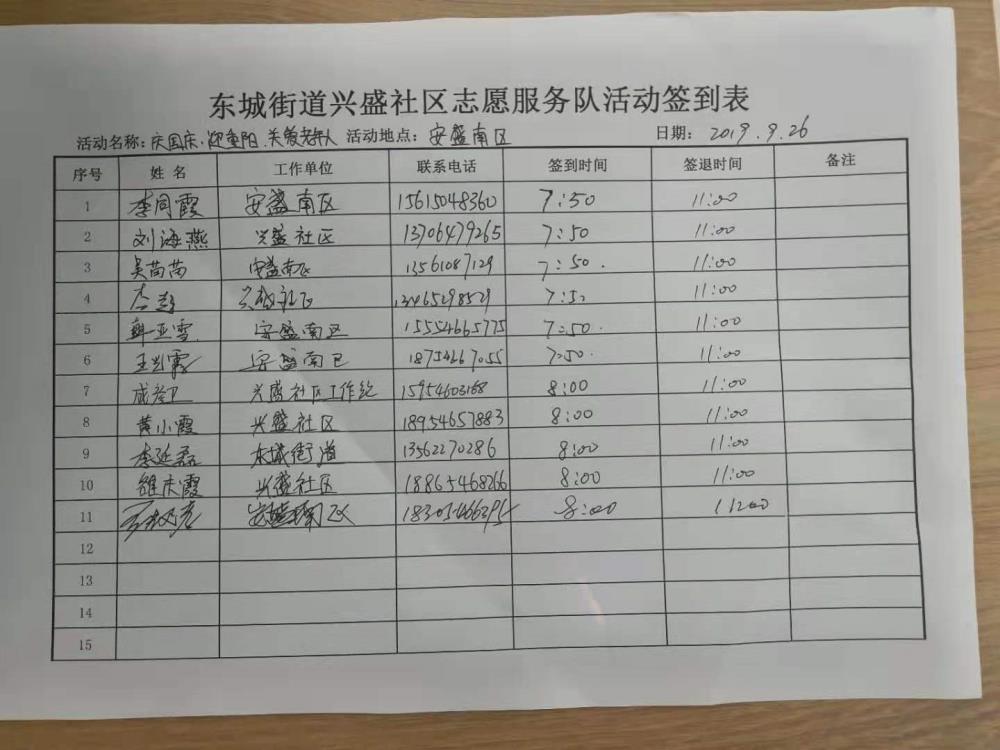 东城街道兴盛社区志愿服务队活动签到表
活动名称:庆国庆·迎重阳·关爱老人 活动地点:安盛南区 日期:2019.9.26
序号 姓名 工作单位 联系电话 签到时间 签退时间 备注
1 李同霞 安盛南区 15615048360 7:50 11:00
2 刘海燕 兴盛社区 13706479265 7:50 11:00
3 吴苗苗 安盛南区 13561087129 7:50. 11:00
4 兴盛社区 13465298529 7:50 11:00
5 薛亚雪 安盛南区 15554665775 7:50. 11:00
6 安盛南区 18754667055 7:50. 11:00
7 兴盛社区工作站 15954603168 8:00 11:00
8 黄小霞 兴盛社区 18954657883 8:00 11:00
9 李延磊 东城街道 13562270286 8:00 11:00
10 兴盛社区 18865468266 8:00 11:00
11 8:00 11:00
12
13
14
15